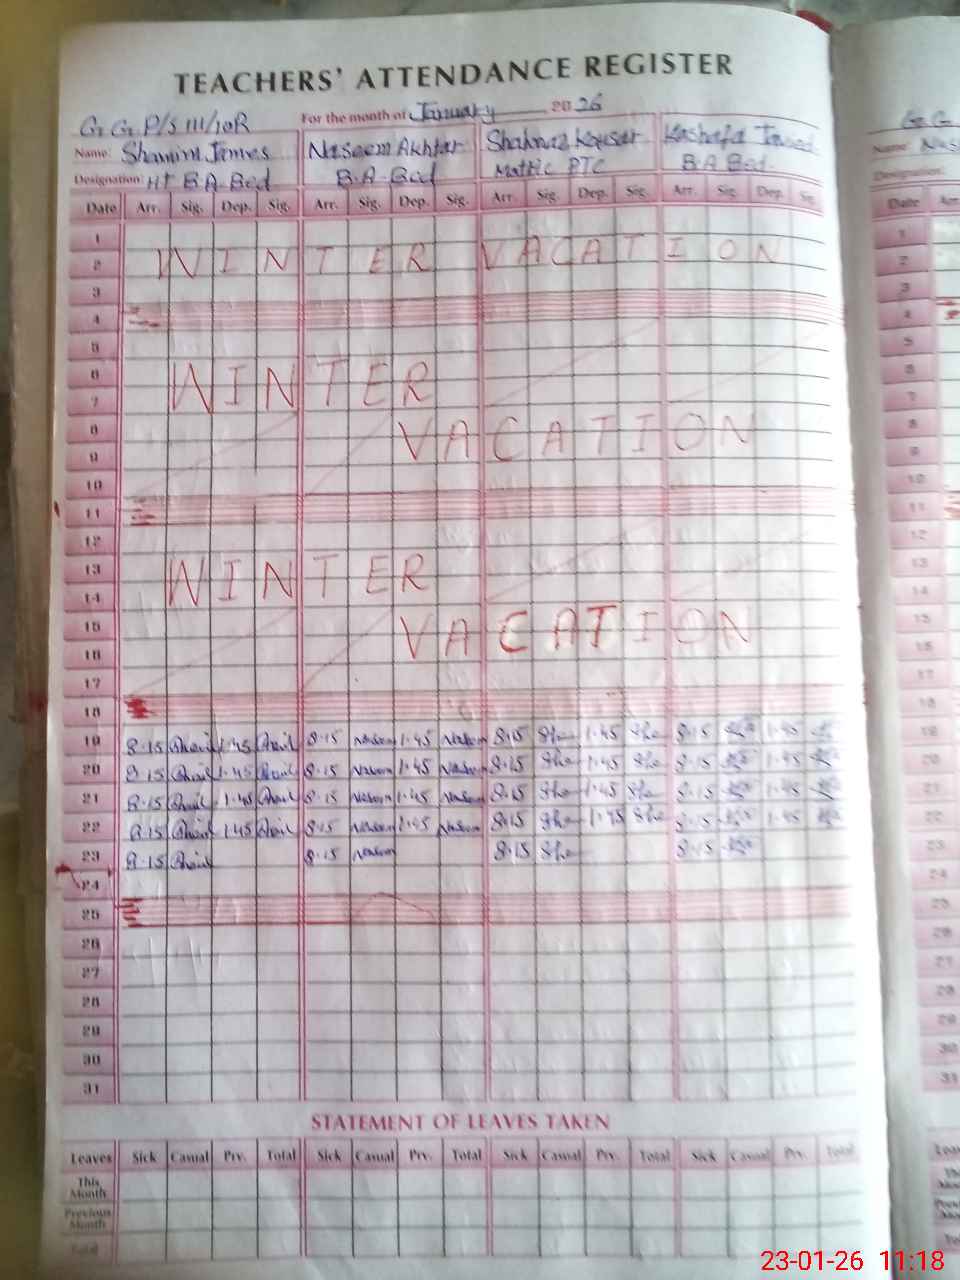 TEACHERS' ATTENDANCE REGISTER
For the month of January 20 26
G. G. P/S 111/10R
Name: Shamim James Naseem Akhtar Shahnaz Kousar Kashafa
Designation: HT B.A-Bed B.A-Bed Matric PTC B.A Bed.
Date Arr. Sig. Dep. Sig. Arr. Sig. Dep. Sig. Arr. Sig. Dep. Sig. Arr. Sig. Dep. Sig.
1
2 WINTER VACATION
3
4
5
6
7 WINTER
8
9 VACATION
10
11
12
13
14 WINTER
15
16 VACATION
17
18
19 8.15 1.45 8.15 Naseem 1.45 Naseem 8.15 She 1.45 She 8.15 1.45
20 8.15 1.45 8.15 Naseem 1.45 Naseem 8.15 She 1.45 She 8.15 1.45
21 8.15 1.45 8.15 Naseem 1.45 Naseem 8.15 She 1.45 She 8.15 1.45
22 8.15 1.45 8.15 Naseem 1.45 Naseem 8.15 She 1.45 She 8.15 1.45
23 8.15 8.15 Naseem 8.15 She 8.15
24
25
26
27
28
29
30
31
STATEMENT OF LEAVES TAKEN
Leaves Sick Casual Prv. Total Sick Casual Prv. Total Sick Casual Prv. Total Sick Casual Prv. Total
This Month
Previous Month
Total
23-01-26 11:18